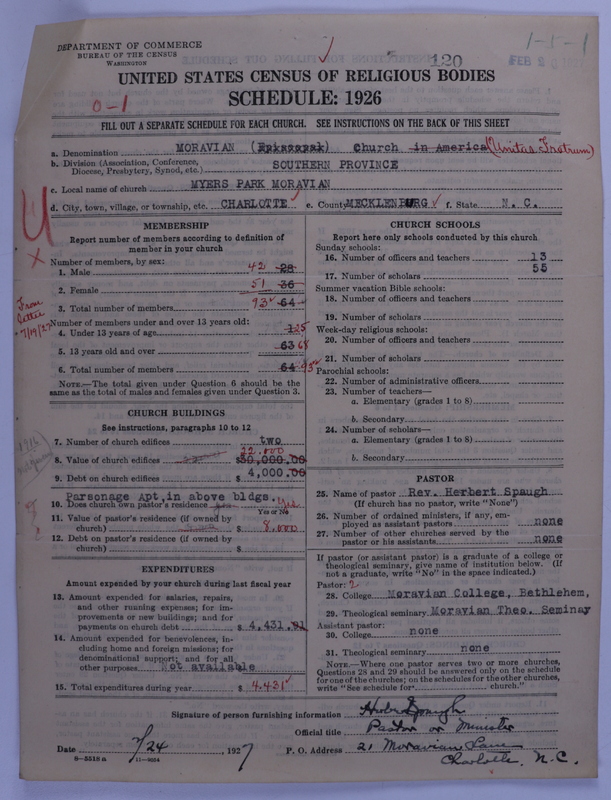 DEPARTMENT OF COMMERCE
BUREAU OF THE CENSUS
WASHINGTON
120
FEB 2
1-5-1
UNITED STATES CENSUS OF RELIGIOUS BODIES
SCHEDULE: 1926
0-1
FILL OUT A SEPARATE SCHEDULE FOR EACH CHURCH. SEE INSTRUCTIONS ON THE BACK OF THIS SHEET
a. Denomination MORAVIAN (Episcopal) Church in America (Unitas Fratrum)
b. Division (Association, Conference, Diocese, Presbytery, Synod, etc.) SOUTHERN PROVINCE
c. Local name of church MYERS PARK MORAVIAN
d. City, town, village, or township, etc. CHARLOTTE e. County MECKLENBURG f. State N. C.
MEMBERSHIP
Report number of members according to definition of member in your church
Number of members, by sex:
1. Male 42 28
2. Female 51 36
3. Total number of members 93 64
From
7/19/27
Number of members under and over 13 years old:
4. Under 13 years of age 1 25
5. 13 years old and over 63 68
6. Total number of members 64 93
NOTE.—The total given under Question 6 should be the same as the total of males and females given under Question 3.
CHURCH BUILDINGS
See instructions, paragraphs 10 to 12
7. Number of church edifices two
8. Value of church edifices 22,000 $30,000.00
9. Debt on church edifices $ 4,000.00
Parsonage Apt, in above bldgs.
10. Does church own pastor's residence yes Yes
Yes or No
11. Value of pastor's residence (if owned by church) $ 8,000
12. Debt on pastor's residence (if owned by church) $
EXPENDITURES
Amount expended by your church during last fiscal year
13. Amount expended for salaries, repairs, and other running expenses; for improvements or new buildings; and for payments on church debt $ 4,431.91
14. Amount expended for benevolences, including home and foreign missions; for denominational support; and for all other purposes Not available
15. Total expenditures during year $ 4,431
CHURCH SCHOOLS
Report here only schools conducted by this church
Sunday schools:
16. Number of officers and teachers 13
17. Number of scholars 55
Summer vacation Bible schools:
18. Number of officers and teachers
19. Number of scholars
Week-day religious schools:
20. Number of officers and teachers
21. Number of scholars
Parochial schools:
22. Number of administrative officers
23. Number of teachers—
a. Elementary (grades 1 to 8)
b. Secondary
24. Number of scholars—
a. Elementary (grades 1 to 8)
b. Secondary
PASTOR
25. Name of pastor Rev. Herbert Spaugh
(If church has no pastor, write "None")
26. Number of ordained ministers, if any, employed as assistant pastors none
27. Number of other churches served by the pastor or his assistants none
If pastor (or assistant pastor) is a graduate of a college or theological seminary, give name of institution below. (If not a graduate, write "No" in the space indicated.)
Pastor: 2
28. College Moravian College, Bethlehem,
29. Theological seminary Moravian Theo. Seminay
Assistant pastor:
30. College none
31. Theological seminary none
NOTE.—Where one pastor serves two or more churches, Questions 28 and 29 should be answered only on the schedule for one of the churches; on the schedules for the other churches, write "See schedule for church."
Signature of person furnishing information Herbert Spaugh
Official title Pastor or Minister
Date 2/24, 1927 P. O. Address 21 Moravian Lane
Charlotte, N. C.
8-5518a 11-9024